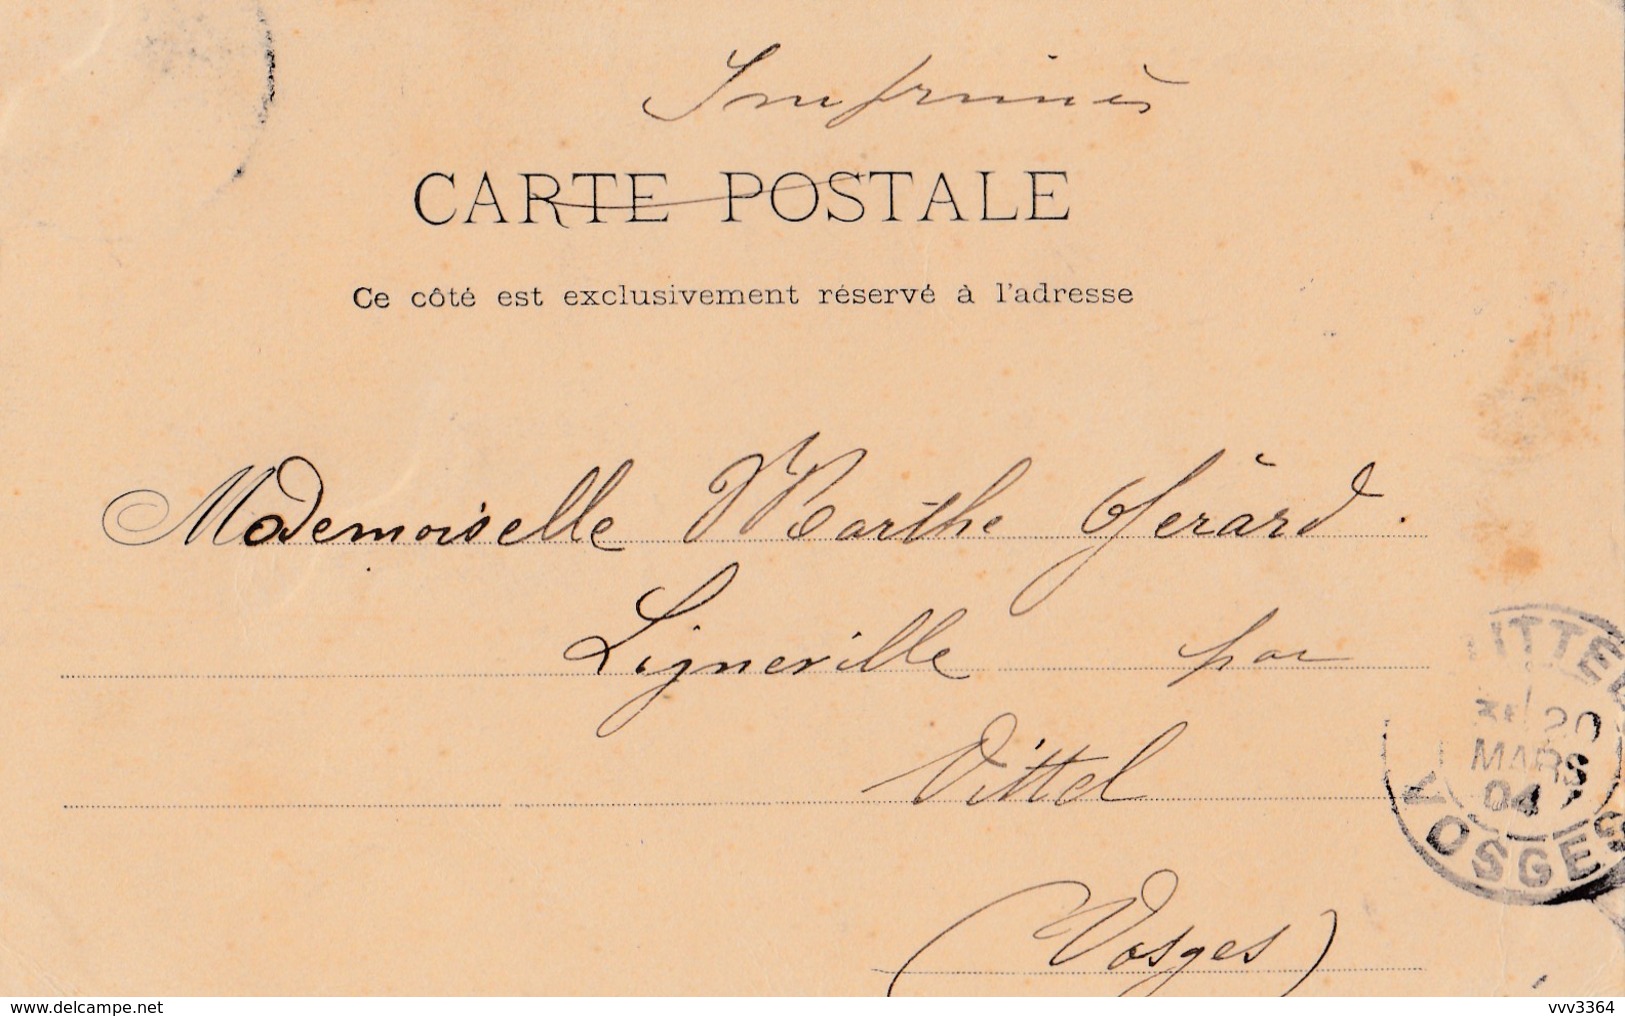 Imprimés
CARTE POSTALE
Ce côté est exclusivement réservé à l'adresse
Mademoiselle Marthe Gérard.
Ligneville par
Vittel
(Vosges)
VITTEL
20
MARS
04
VOSGES
www.delcampe.net
vvv3364